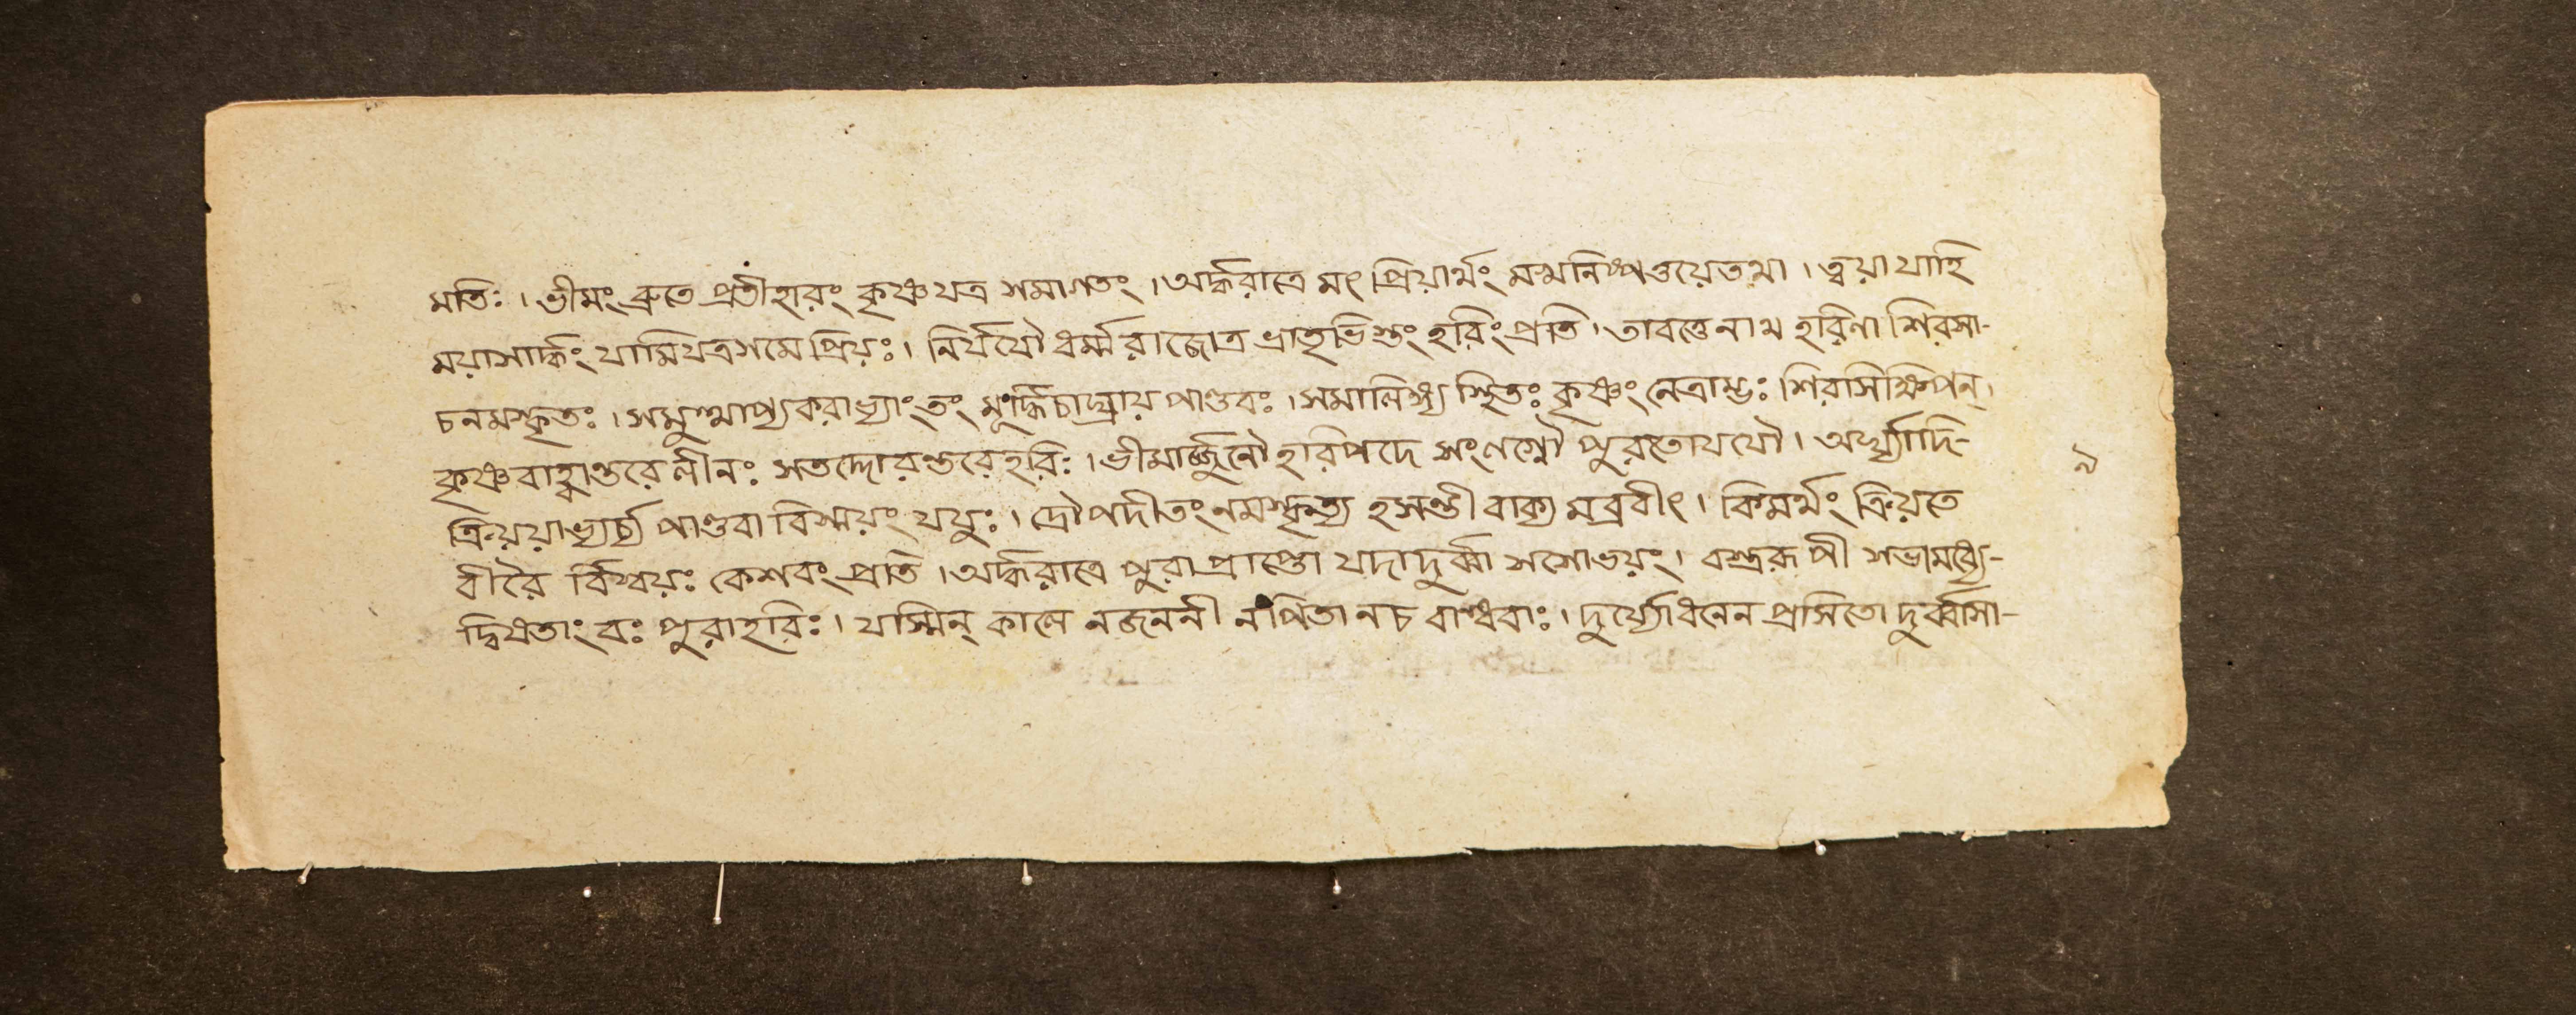 মতিঃ । ভীমং ব্রুতে প্রতীহারং কৃষ্ণ যত্র সমাগতং । অর্দ্ধরাত্রে মৎ প্রিয়ার্থং মন্মনিষ্পত্তয়েতথা । ত্বয়া যাহি
ময়াসার্দ্ধং যামিযত্রসমে প্রিয়ঃ । নির্যযৌ ধর্ম্মরাজোত্র ভ্রাতৃভিস্তং হরিং প্রতি । তাবত্তেনাথ হরিণা শিরসা-
চনমস্কৃতঃ । সমুত্থাপ্যকরাভ্যাং তং মূর্দ্ধিচাঘ্রায় পাণ্ডবঃ । সমালিঙ্গ্য স্থিতঃ কৃষ্ণং নেত্রাম্ভঃ শিরসিক্ষিপন্ ।
কৃষ্ণবাহ্বান্তরে লীনঃ সতদ্দোরন্তরেহরিঃ । ভীমার্জ্জুনৌ হরিপদে সংলগ্নৌ পুরতোযযৌ । অর্ঘ্যাদি-
ক্রিয়য়াভ্যর্চ্য পাণ্ডবা বিস্ময়ং যযুঃ । দ্রৌপদীতং নমস্কৃত্য হসন্তী বাক্য মব্রবীৎ । কিমর্থং ক্রিয়তে
বীরৈ র্বিস্ময়ঃ কেশবং প্রতি । অর্দ্ধরাত্রে পুরা প্রাপ্তো যদাদুর্ব্বা সসোভয়ং । বস্ত্ররূপী সভামধ্যে-
দ্বিষতাং বঃ পুরাহরিঃ । যস্মিন্ কালে নজননী নপিতা নচ বান্ধবাঃ । দুর্য্যোধনেন প্রসিতো দুর্ব্বাসা-
৯